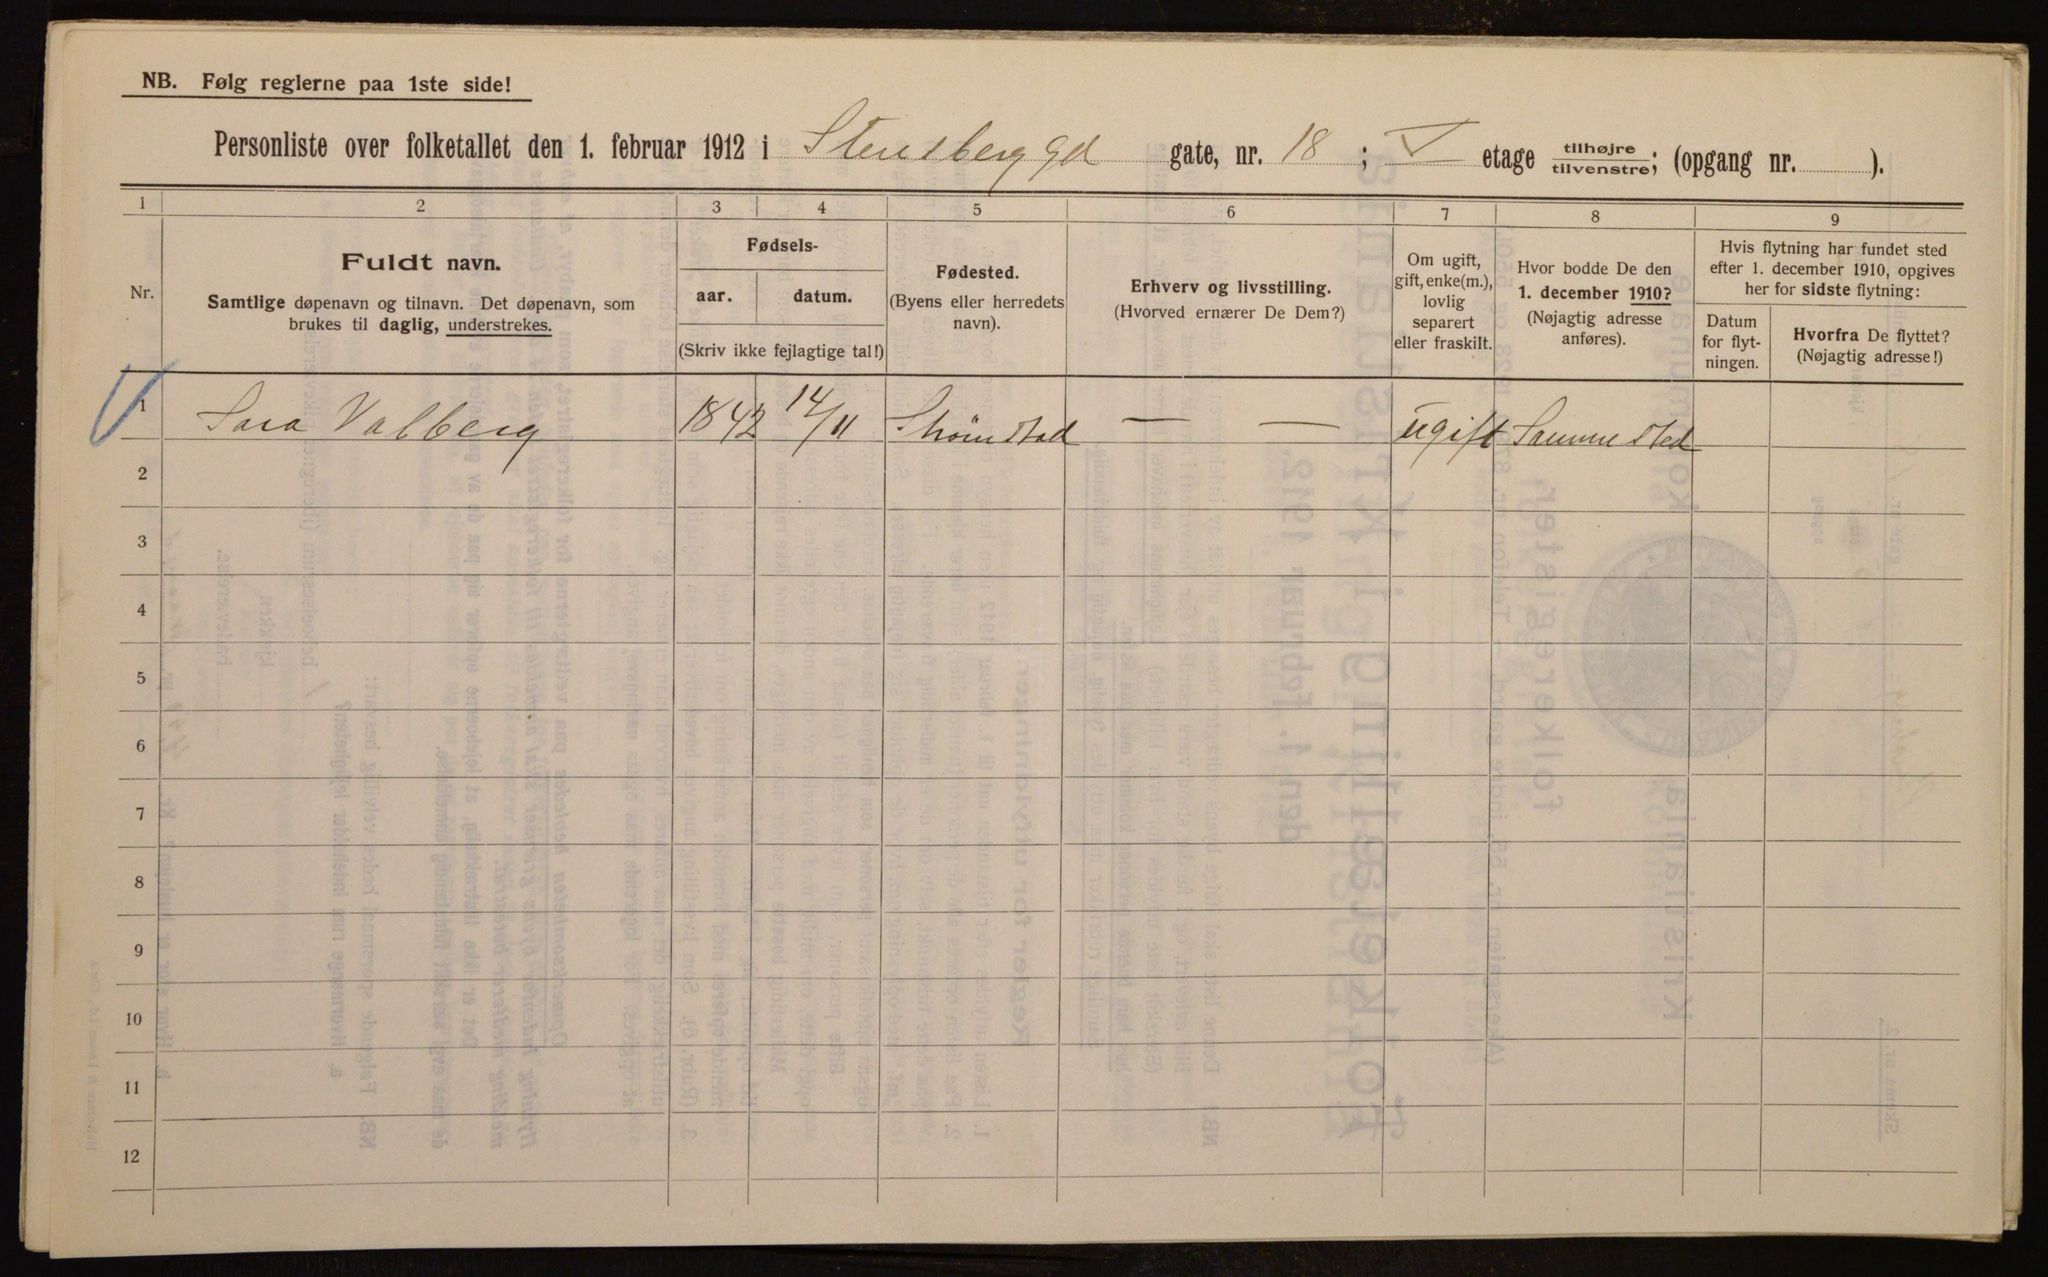 NB. Følg reglerne paa 1ste side!
Personliste over folketallet den 1. februar 1912 i Stensberggd gate, nr. 18 ; V etage tilhøjre/tilvenstre; (opgang nr. ).
1 2 3 4 5 6 7 8 9
Nr.
Fuldt navn.
Samtlige døpenavn og tilnavn. Det døpenavn, som
brukes til daglig, understrekes.
Fødsels-
aar. datum.
(Skriv ikke fejlagtige tal!)
Fødested.
(Byens eller herredets
navn).
Erhverv og livsstilling.
(Hvorved ernærer De Dem?)
Om ugift,
gift, enke(m.),
lovlig
separert
eller fraskilt.
Hvor bodde De den
1. december 1910?
(Nøjagtig adresse
anføres).
Hvis flytning har fundet sted
efter 1. december 1910, opgives
her for sidste flytning:
Datum
for flyt-
ningen.
Hvorfra De flyttet?
(Nøjagtig adresse!)
1 Sara Valberg 1842 14/11 Strömstad — — ugift Samme sted
2
3
4
5
6
7
8
9
10
11
12